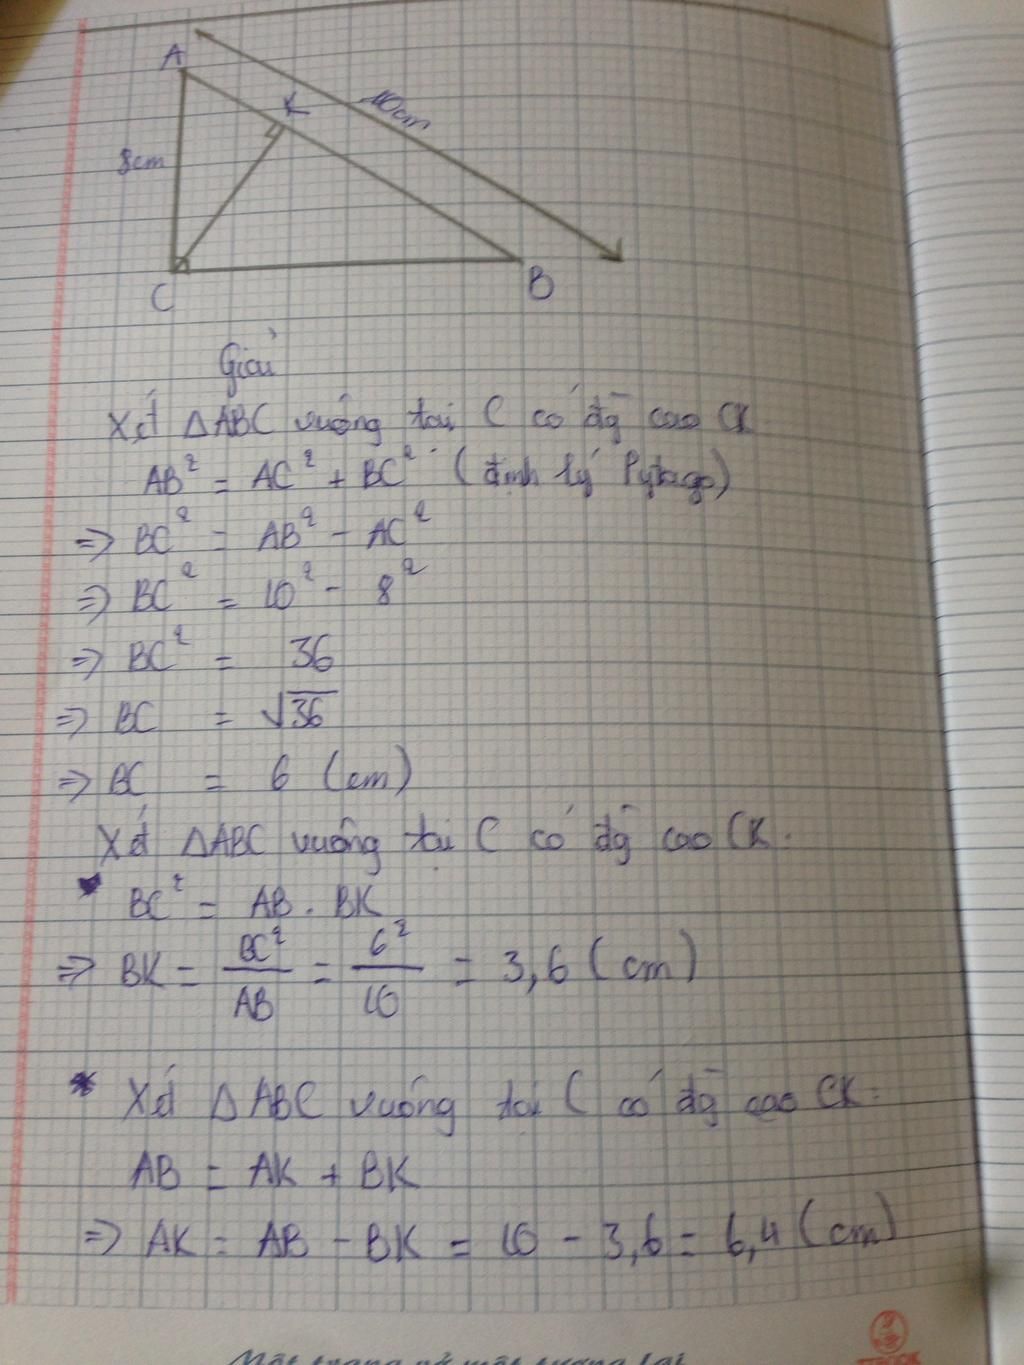 A
K
10cm
8cm
C
B
Giải
Xét ΔABC vuông tại C có đg cao CK
AB² = AC² + BC² (định lý Pytago)
=> BC² = AB² - AC²
=> BC² = 10² - 8²
=> BC² = 36
=> BC = √36
=> BC = 6 (cm)
Xét ΔABC vuông tại C có đg cao CK:
* BC² = AB . BK
=> BK = BC²/AB = 6²/10 = 3,6 (cm)
* Xét ΔABC vuông tại C có đg cao CK:
AB = AK + BK
=> AK = AB - BK = 10 - 3,6 = 6,4 (cm)
Một trang vở một tương lai